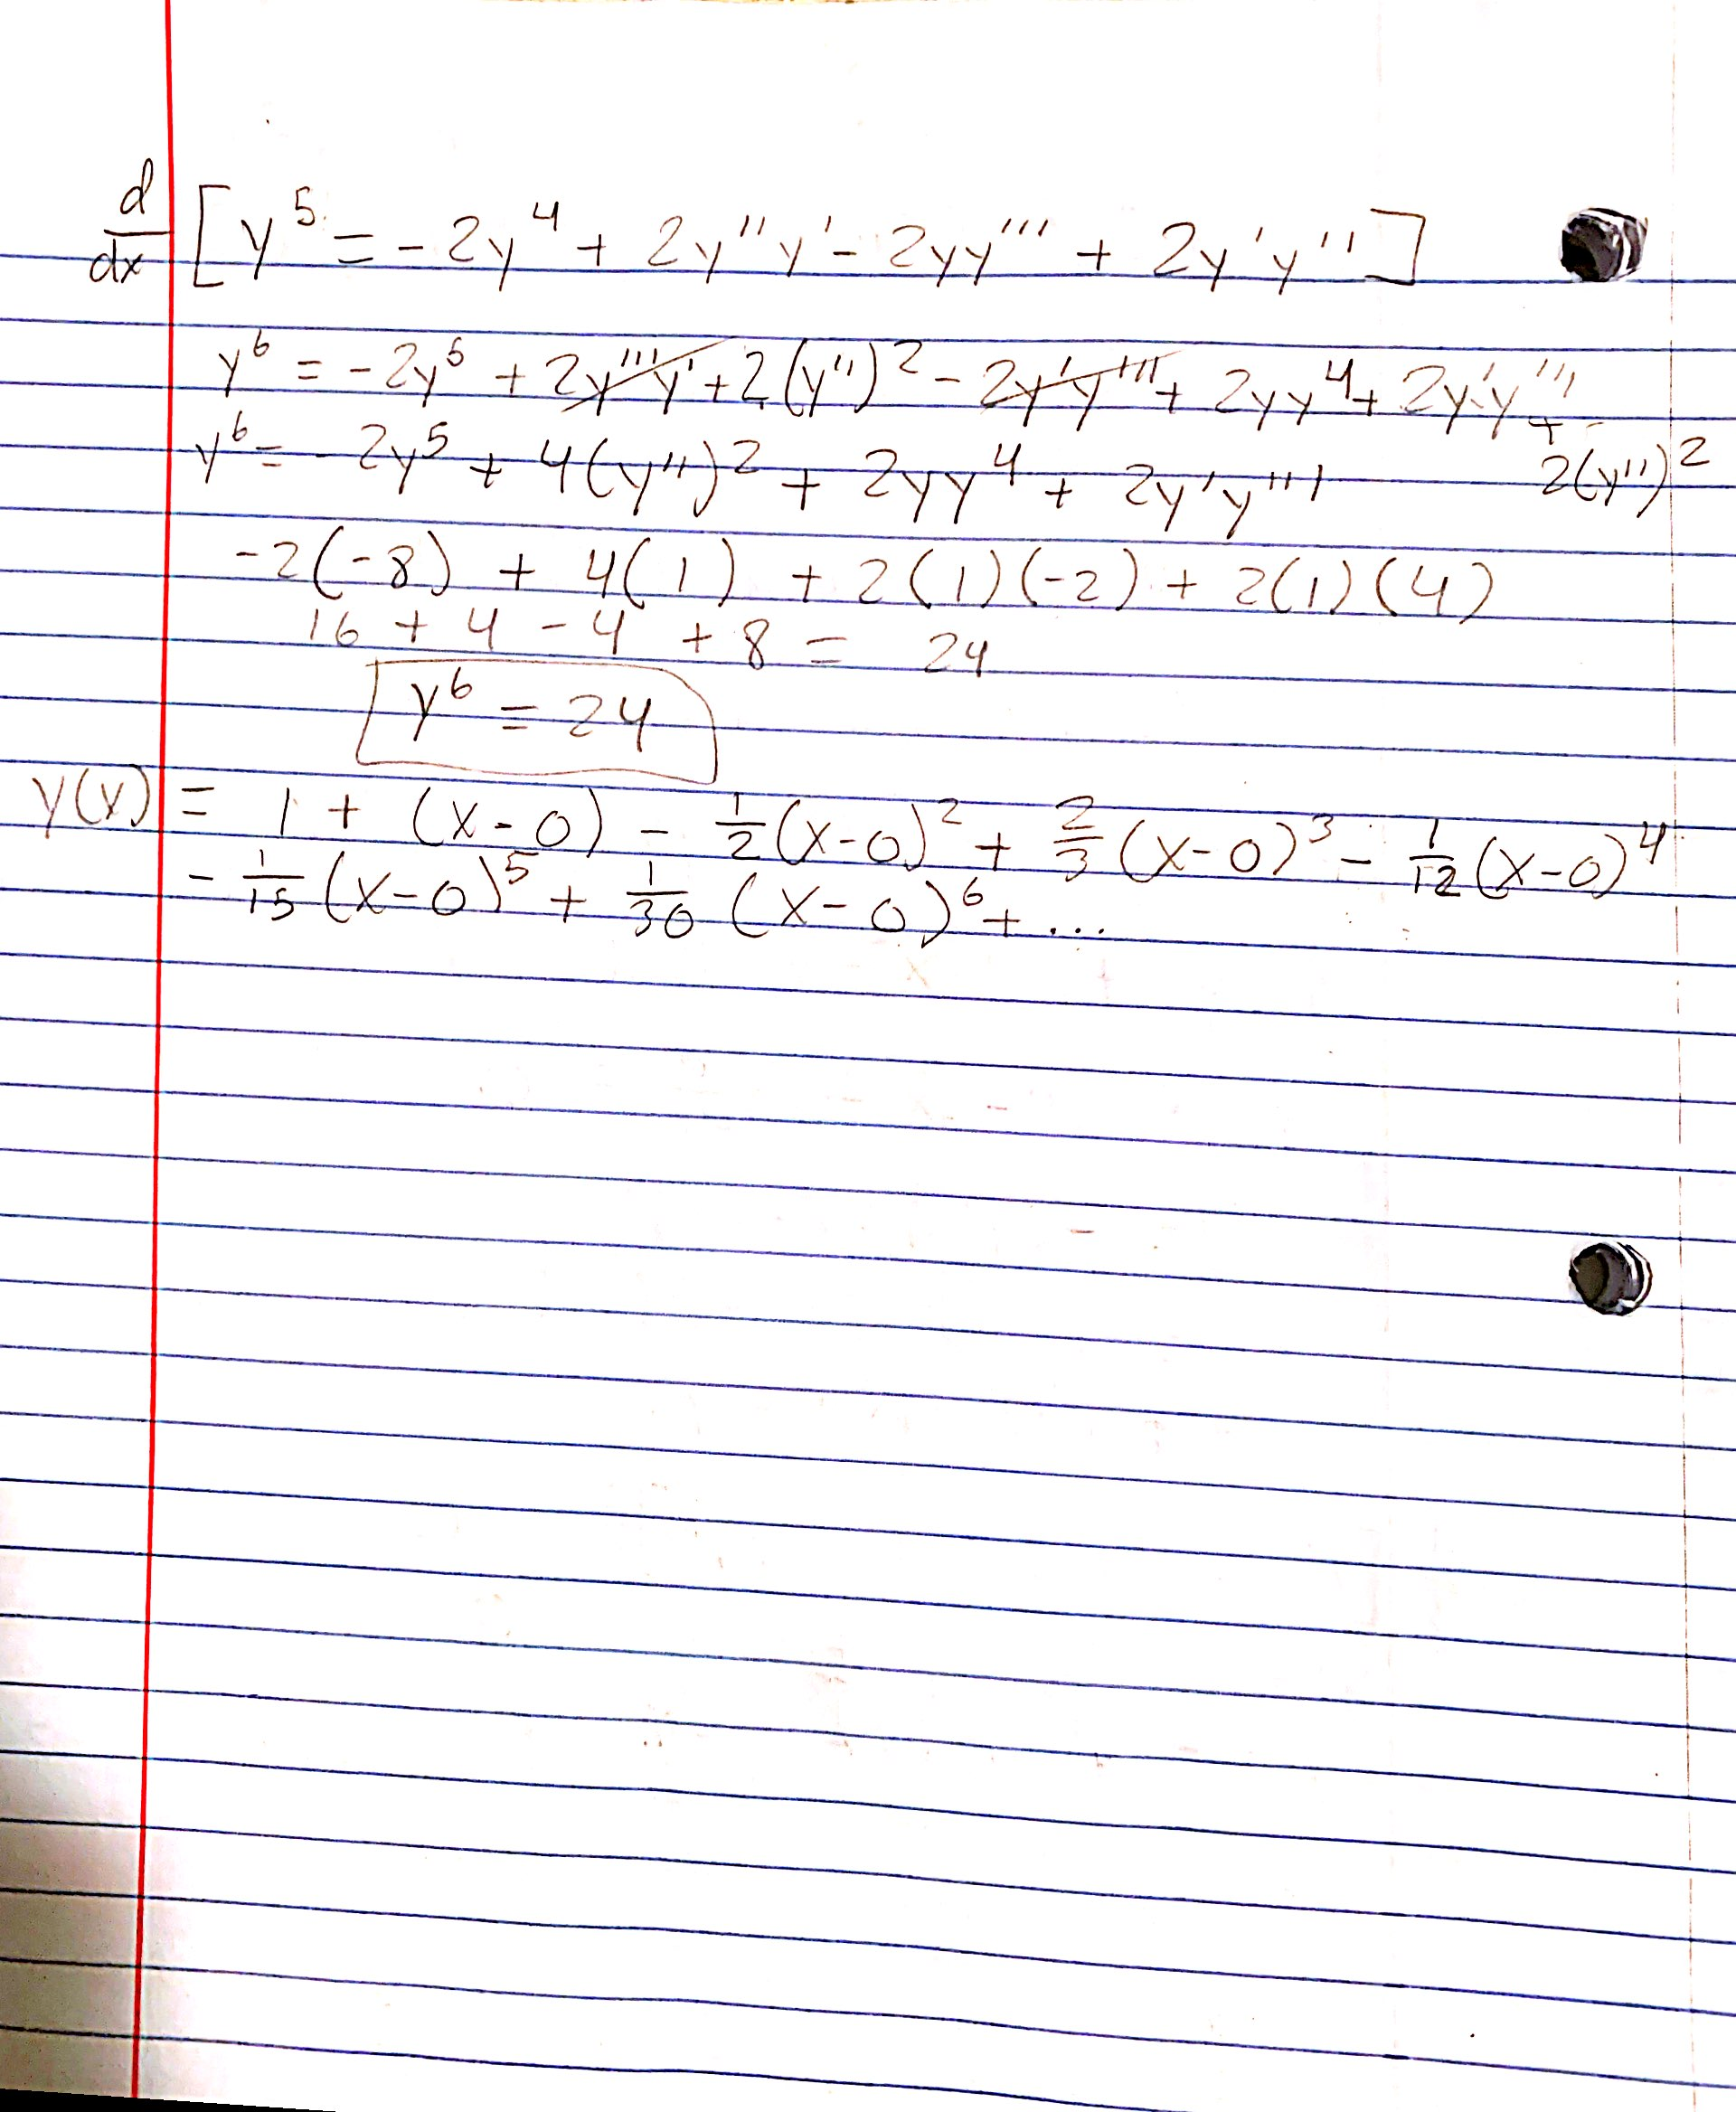 d/dx [y^5 = -2y^4 + 2y''y' - 2yy''' + 2y'y'']
y^6 = -2y^5 + 2y'''y' + 2(y'')^2 - 2y'y''' + 2yy^4 + 2y'y''' + 2(y'')^2
y^6 = -2y^5 + 4(y'')^2 + 2yy^4 + 2y'y'''
-2(-8) + 4(1) + 2(1)(-2) + 2(1)(4)
16 + 4 - 4 + 8 = 24
y^6 = 24
y(x) = 1 + (x-0) - 1/2(x-0)^2 + 2/3(x-0)^3 - 1/12(x-0)^4
- 1/15(x-0)^5 + 1/30(x-0)^6 + ...